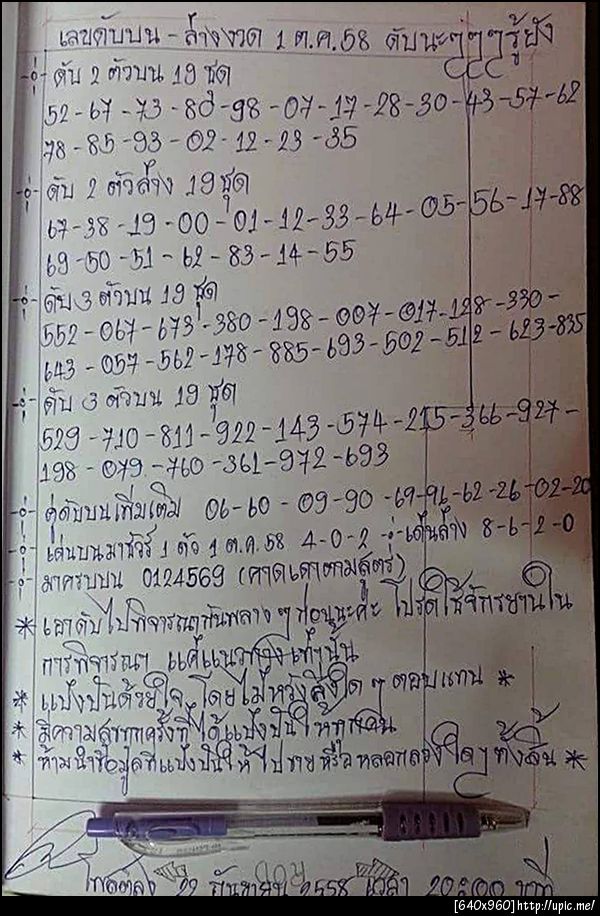 เลขดับบน - ล่างงวด 1 ต.ค.58 ดับนะๆๆๆๆรู้ยัง
ดับ 2 ตัวบน 19 ชุด
52-67-73-80-98-07-17-28-30-43-57-62
78-85-93-02-12-23-35
ดับ 2 ตัวล่าง 19 ชุด
67-38-19-00-01-12-33-64-05-56-17-88
69-50-51-62-83-14-55
ดับ 3 ตัวบน 19 ชุด
552-067-673-380-198-007-017-128-330-
643-057-562-178-885-693-502-512-623-835
ดับ 3 ตัวบน 19 ชุด
529-710-811-922-143-574-215-366-927-
198-079-760-361-972-693
คู่ดับบนเพิ่มเติม 06-60-09-90-69-96-62-26-02-20
เด่นบนมาชัวร์ 1 ตัว 1 ต.ค.58 4-0-2 เด่นล่าง 8-6-2-0
มาครบบน 0124569 (คาดเดาตามสูตร)
* เอาดับไปพิจารณากันพลางๆก่อนนะคะ โปรดใช้จักรยานใน
การพิจารณา แค่แนวทางเท่านั้น
* แบ่งปันด้วยใจ โดยไม่หวังสิ่งใดๆ ตอบแทน *
* มีความสุขทุกครั้งที่ได้แบ่งปันให้ทุกคน
* ห้ามนำข้อมูลที่แบ่งปันให้ไปขายหรือหลอกลวงใดๆทั้งสิ้น *
22 กันยายน 2558 เวลา 20:00 นาที
[640x960]http://upic.me/